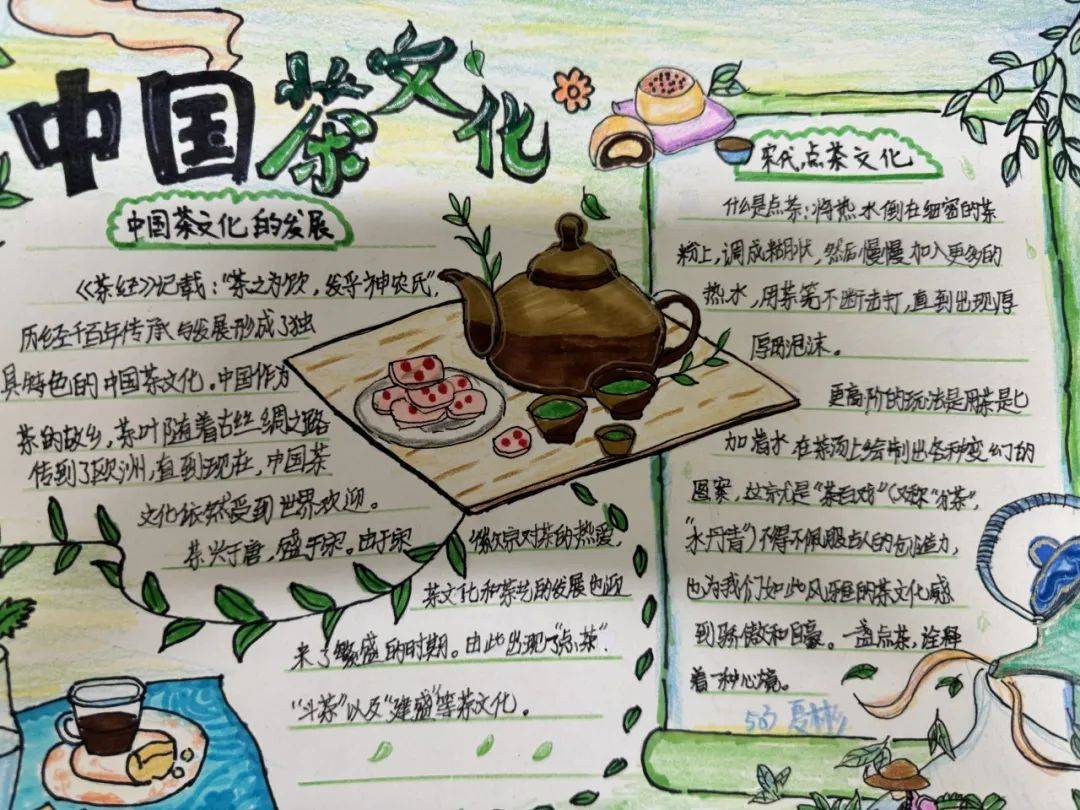 中国茶文化
中国茶文化的发展
《茶经》记载："茶之为饮，发乎神农氏"，
历经千百年传承与发展形成了独
具特色的中国茶文化。中国作为
茶的故乡，茶叶随着古丝绸之路
传到了欧洲，直到现在，中国茶
文化依然受到世界欢迎。
茶兴于唐，盛于宋。由于宋
徽宗对茶的热爱，
茶文化和茶艺的发展也迎
来了繁盛的时期。由此出现了"点茶"、
"斗茶"以及"建盏"等茶文化。
宋代点茶文化
什么是点茶：将热水倒在细密的茶
粉上，调成糊状，然后慢慢加入更多的
热水，用茶筅不断击打，直到出现厚
厚的泡沫。
更高阶的玩法是用茶匕
加着水在茶汤上绘制出各种变幻的
图案，这就是"茶百戏"（又称"分茶"，
"水丹青"）不得不佩服古人的创造力，
也为我们如此风雅的茶文化感
到骄傲和自豪。一盏点茶，诠释
着一种心境。
503 夏彬